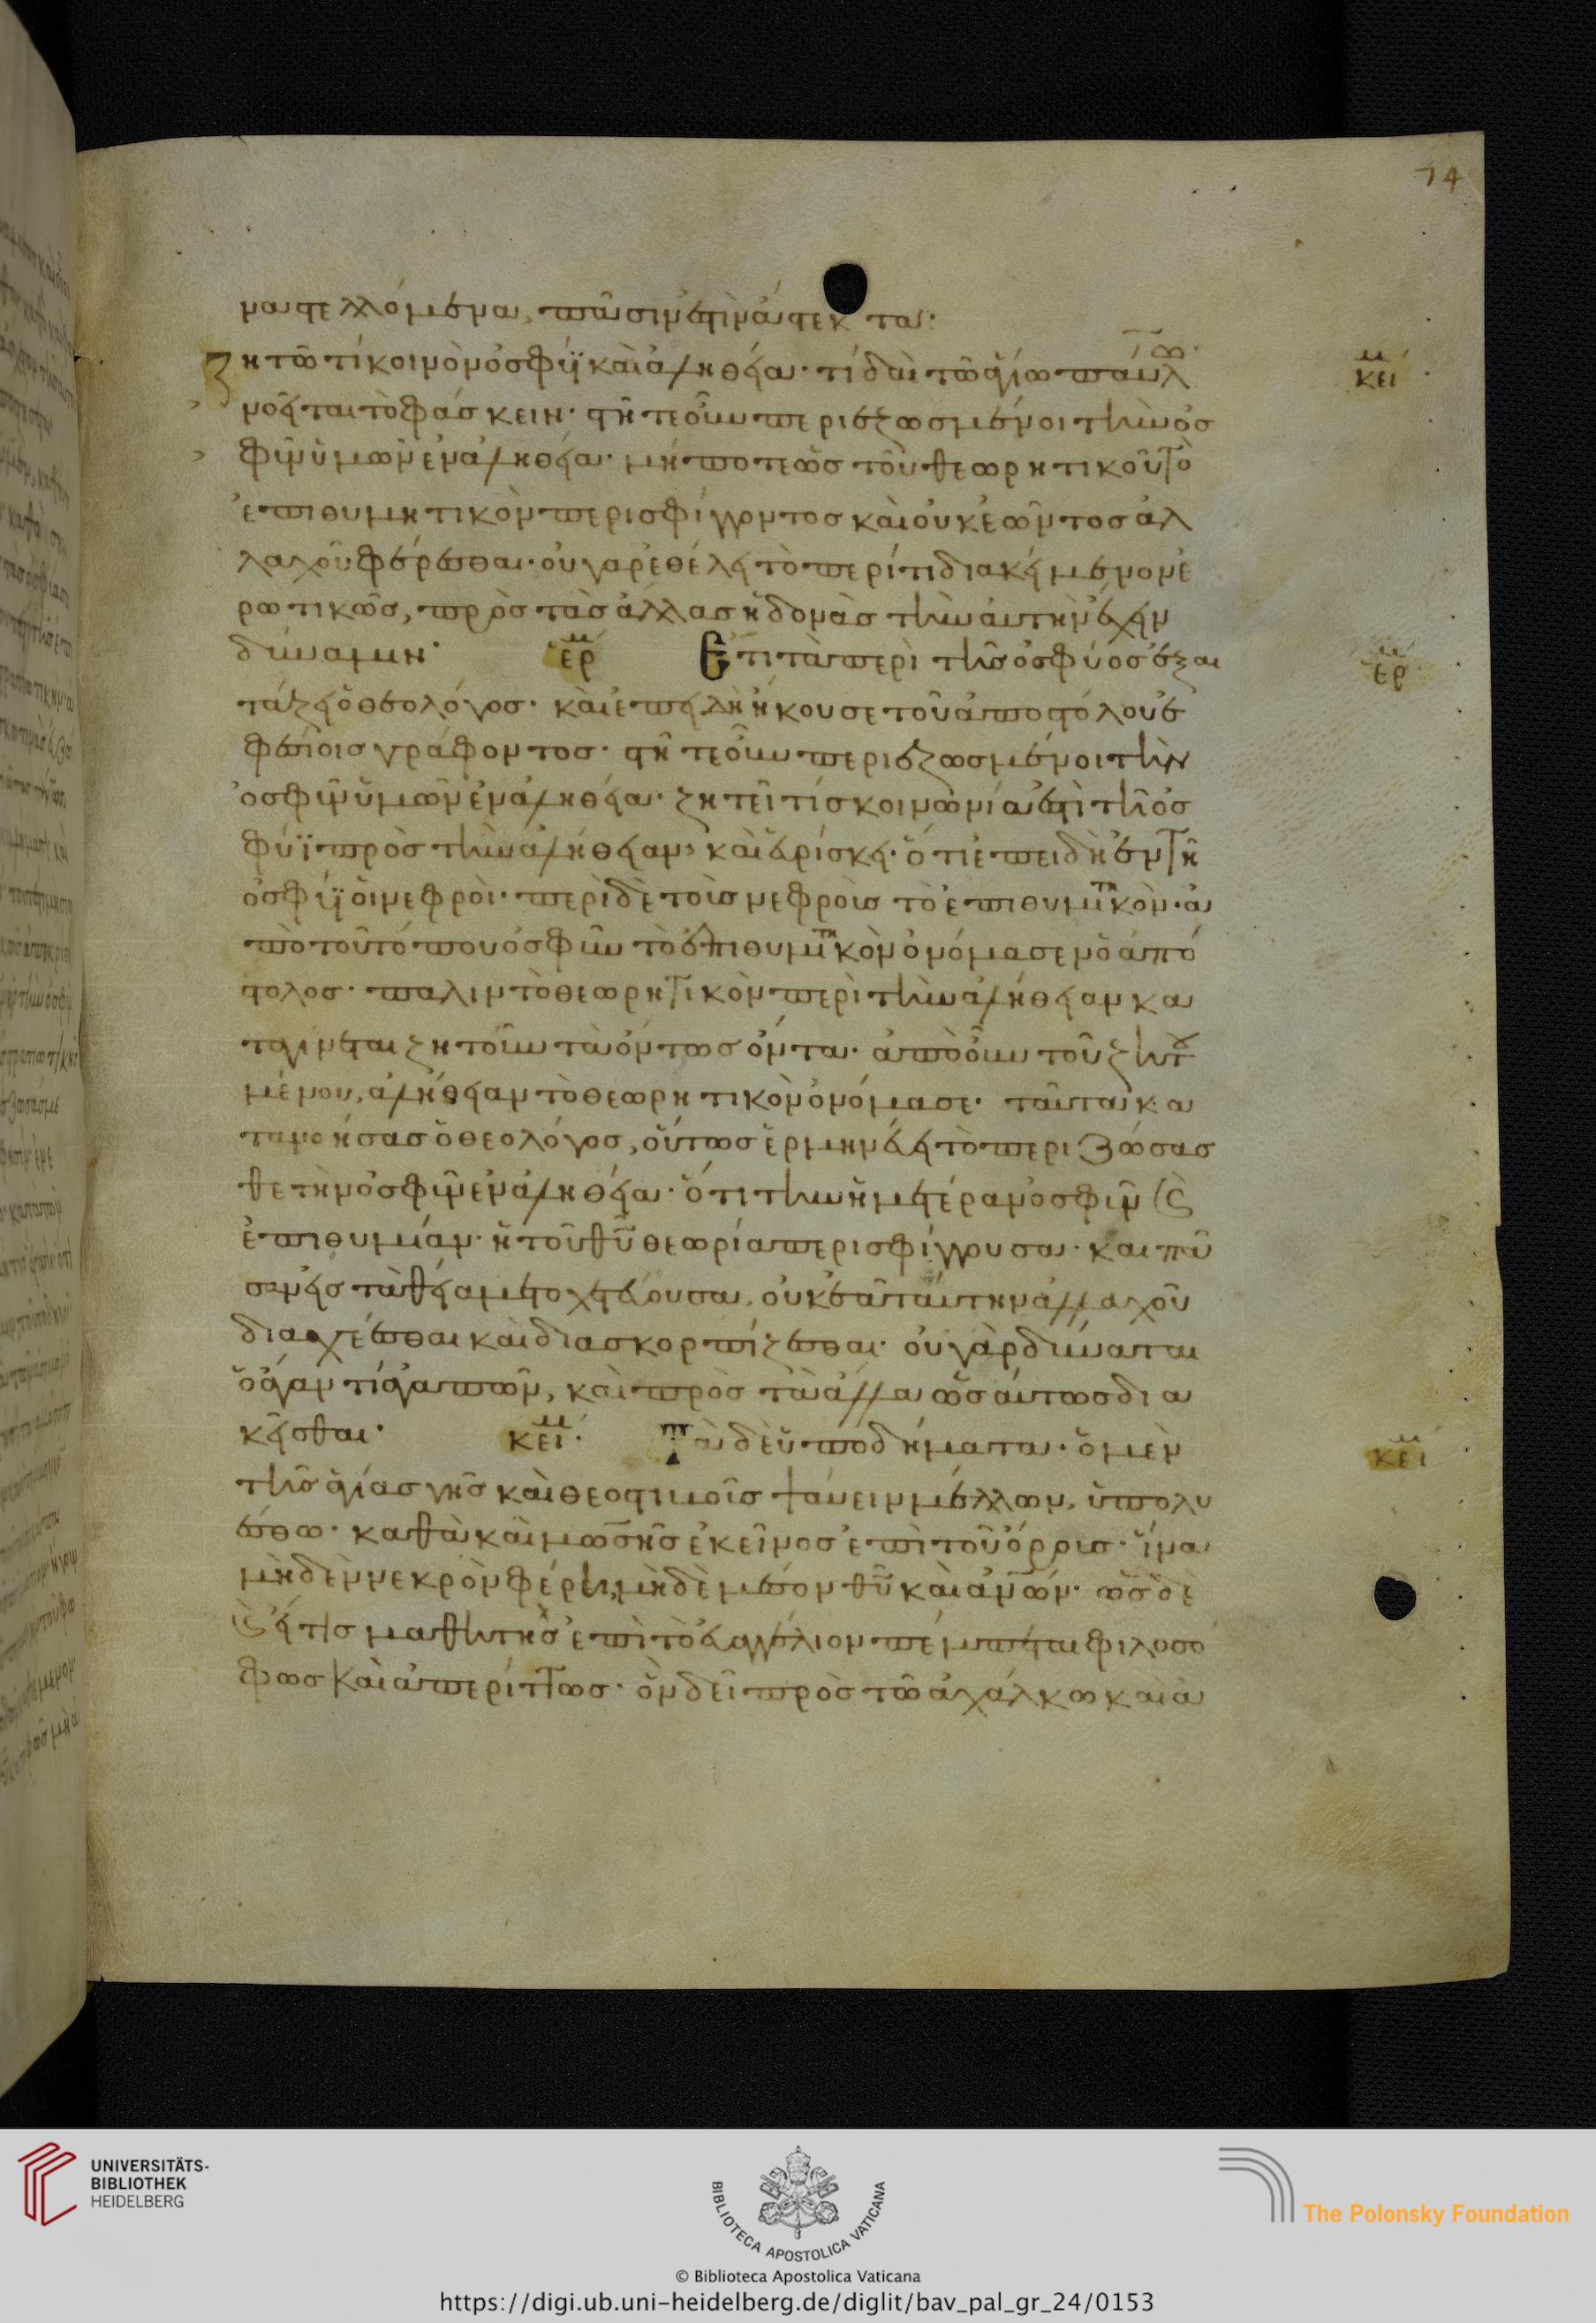 74
ναστελλόμενα, πᾶσιν ἐστὶν ἄνεκτα·
ζητῶ τί κοινὸν ὀσφύϊ καὶ ἀληθεία· τί δαὶ τῶ ἁγίω παύλω
κει
νοεῖται τὸ φάσκειν· στῆτε οὖν περιεζωσμένοι τὴν ὀσ
φὺν ὑμῶν ἐν ἀληθεία· μήποτε ὡς τοῦ θεωρητικοῦ τὸ
ἐπιθυμητικὸν περισφίγγοντος καὶ οὐκ ἐῶντος ἀλ
λαχοῦ φέρεσθαι· οὐ γαρ ἐθέλει τὸ περί τι διακείμενον ἐ
ρωτικῶς, πρὸς τὰς ἄλλας ἡδονὰς τὴν αὐτὴν ἔχειν
δύναμιν· ἑρ Ετι τὰ περὶ τῆς ὀσφύος ἐξε
ἑρ
τάζει ὁ θεολόγος· καὶ ἐπειδὴ ἤκουσε τοῦ ἀποστόλου ἐ
φεσίοις γράφοντος· στῆτε οὖν περιεζωσμένοι τὴν
ὀσφὺν ὑμῶν ἐν ἀληθεία· ζητεῖ τίς κοινωνία ἐστὶ τῆ ὀσ
φύϊ πρὸς τὴν ἀλήθειαν, καὶ εὑρίσκει· ὅτι ἐπειδὴ ἐν τῆ
ὀσφύϊ οἱ νεφροὶ· περὶ δὲ τοῖς νεφροῖς τὸ ἐπιθυμητικὸν· ἀ
πὸ τοῦ τόπου ὀσφῦν τὸ ἐπιθυμητικὸν ὀνόμασεν ὁ ἀπό
στολος· παλιν τὸ θεωρητικὸν περὶ τὴν ἀλήθειαν κα
ταγίνεται ζητοῦν τὰ ὄντως ὄντα· ἀπὸ οὖν τοῦ ζητου
μένου, ἀλήθειαν τὸ θεωρητικὸν ὀνόμασε· ταῦτα κα
τανοήσας ὁ θεολόγος, οὕτως ἑρμηνεύει τὸ περιζώσασ
θε τὴν ὀσφῦν ἐν ἀληθεία· ὅτι τὴν ἡμετέραν ὀσφῦν καὶ
ἐπιθυμίαν· ἡ τοῦ θῦ θεωρία περισφίγγουσα· και που
σιν εἰς τὰ θεῖα μετοχετεύουσα, οὐκ ἐᾶ ταύτην ἀλλαχοῦ
διαχέεσθαι καὶ διασκορπίζεσθαι· οὐ γὰρ δύναται
ὁ θείαν τι ἀγαπῶν, καὶ πρὸς τὰ ἄλλα ὡσαύτως δια
κεῖσθαι· κει· Τὰ δὲ ὑποδήματα· ὁ μὲν
κει
τῆς ἁγίας γῆς καὶ θεοστιβοῦς ψαύειν μέλλων, ὑπολυ
έσθω· καθὰ καὶ μωσῆς ἐκεῖνος ἐπὶ τοῦ ὄρους· ἵνα
μηδὲν νεκρὸν φέρει, μηδὲ μέσον θῦ καὶ ἀνῶν· ὡς δὲ
καὶ εἴ τις μαθητὴς ἐπὶ τὸ εὐαγγέλιον πέμπεται φιλοσό
φως καὶ ἀπερίττως· ὃν δεῖ πρὸς τῶ ἀχάλκω καὶ ἀ
UNIVERSITÄTS-
BIBLIOTHEK
HEIDELBERG
BIBLIOTECA APOSTOLICA VATICANA
The Polonsky Foundation
© Biblioteca Apostolica Vaticana
https://digi.ub.uni-heidelberg.de/diglit/bav_pal_gr_24/0153